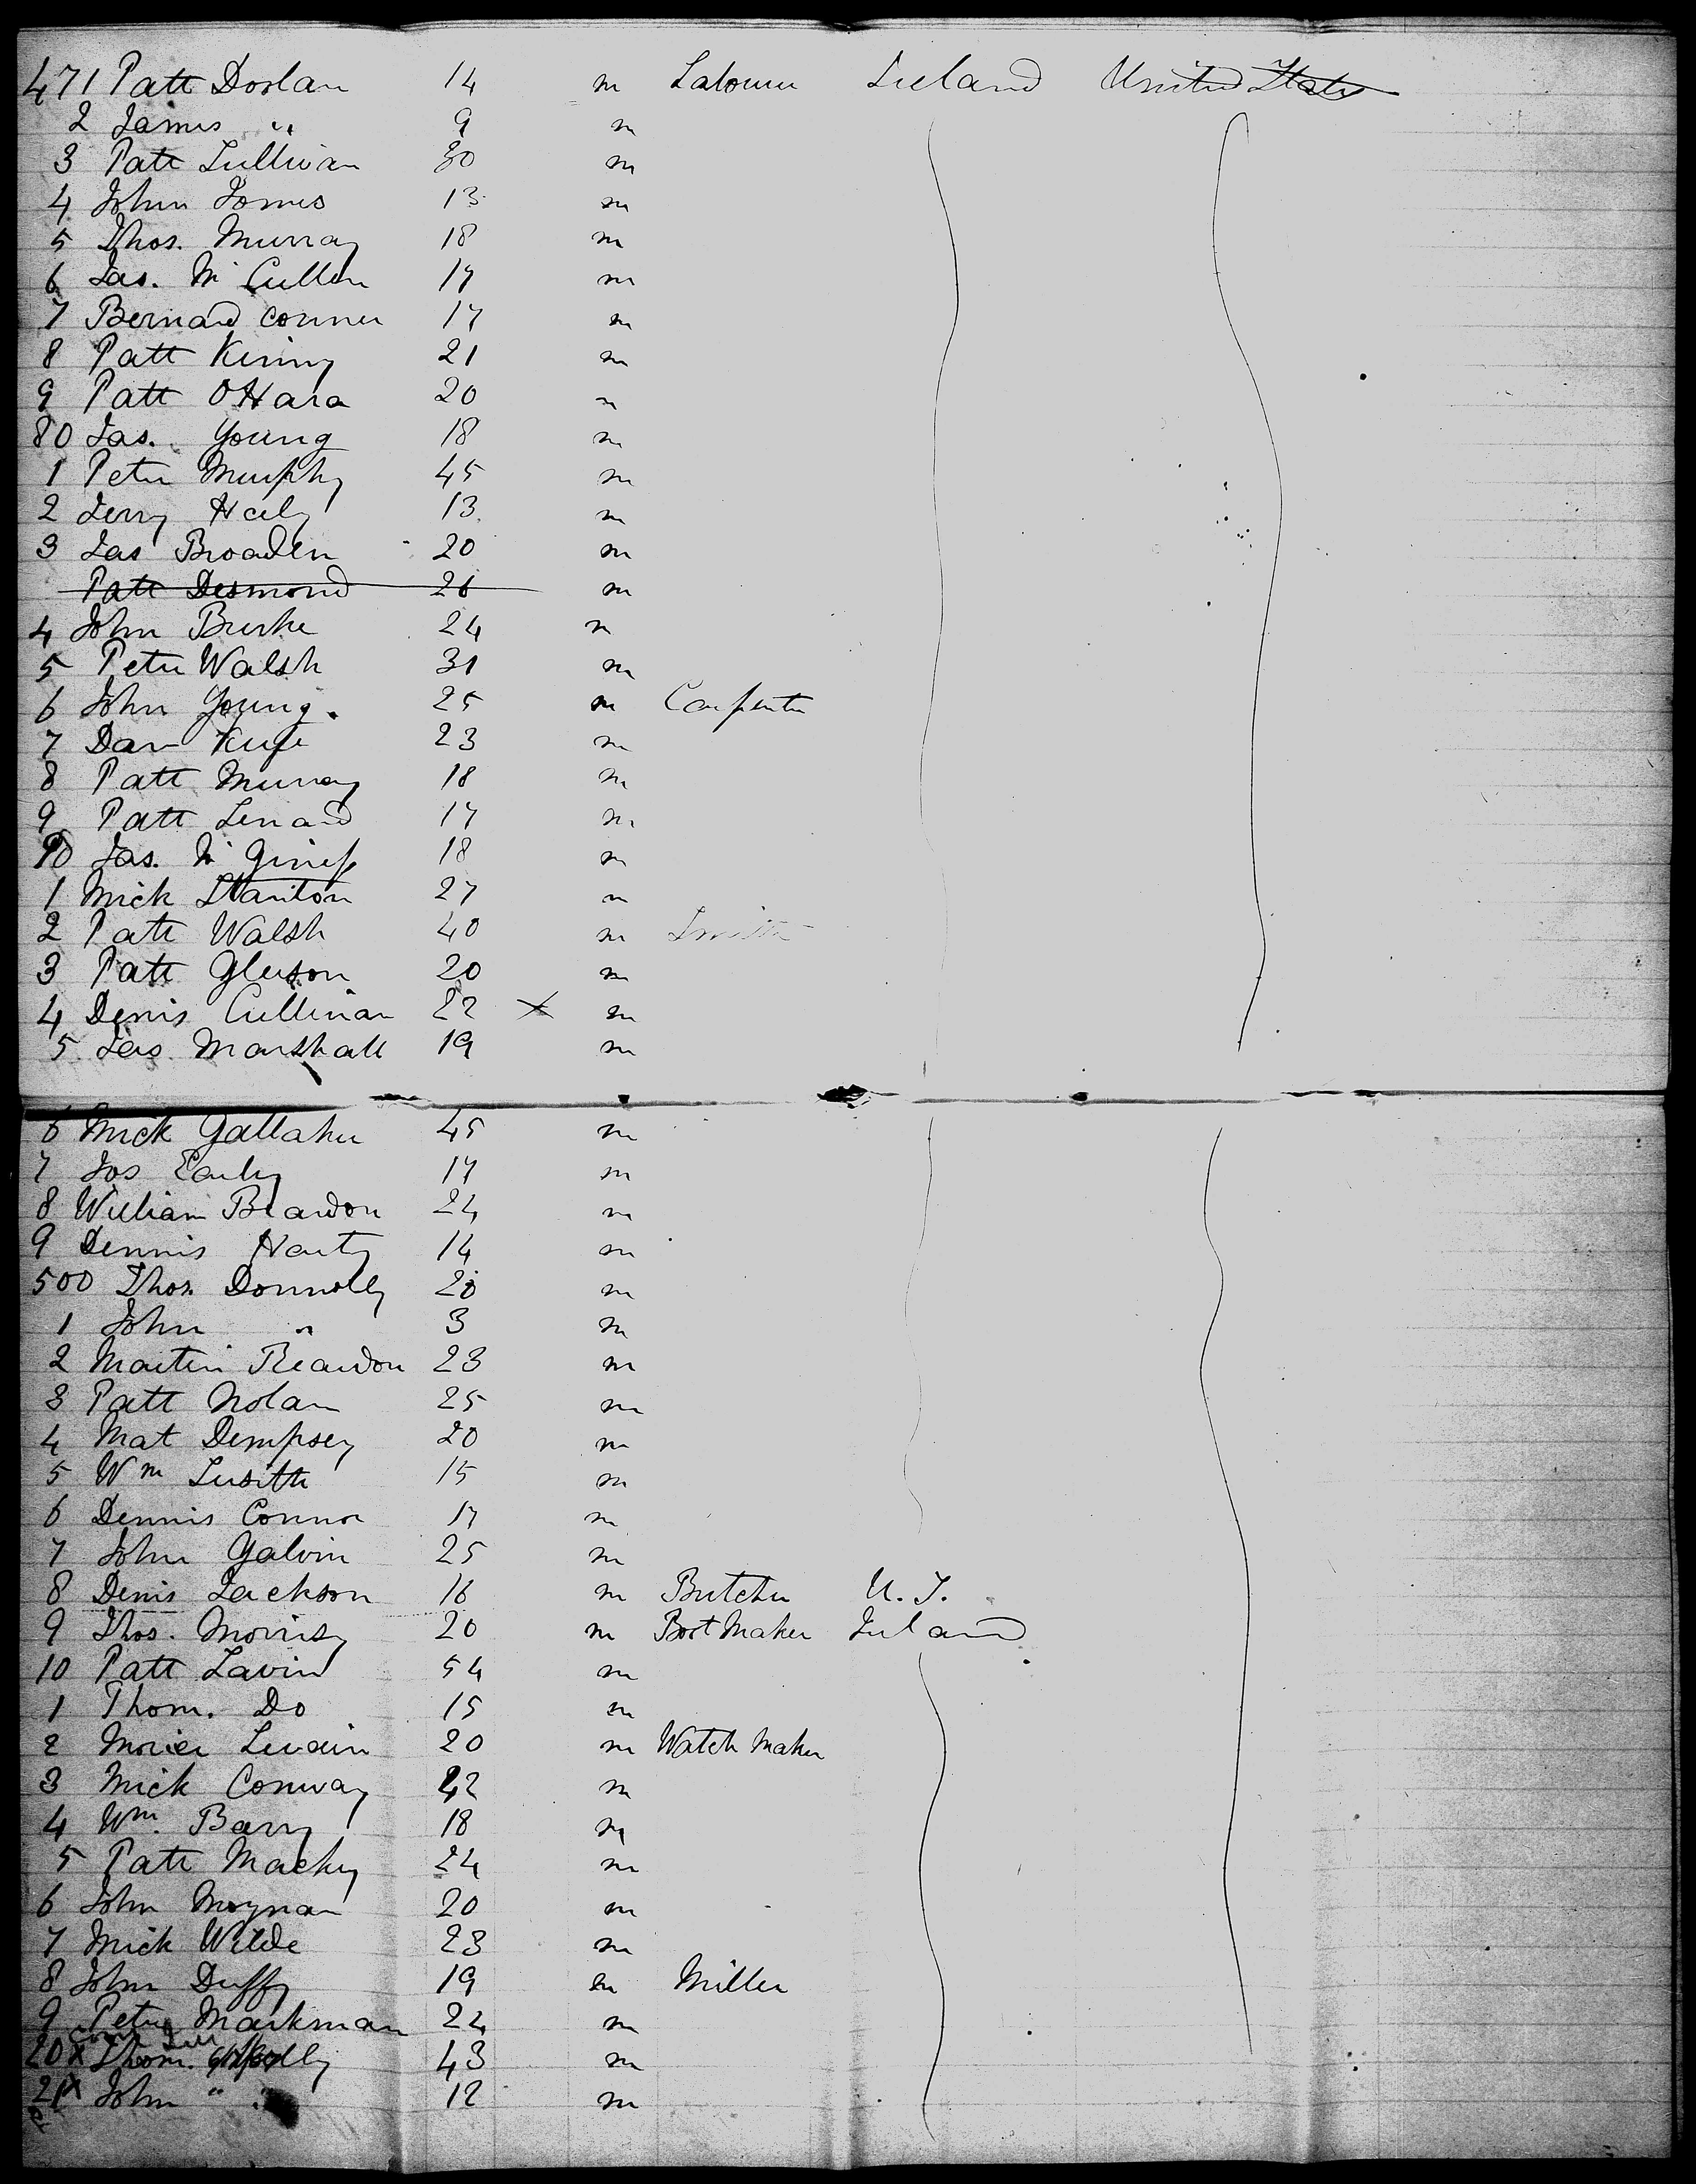 471 Patt Doolan 14 m Labourer Ireland United States
2 James " 9 m
3 Patt Sullivan 30 m
4 John Jones 13 m
5 Thos. Murray 18 m
6 Jas. Mc Cullen 17 m
7 Bernard Conner 17 m
8 Patt Kinny 21 m
9 Patt O Hara 20 m
80 Jas. Young 18 m
1 Peter Murphy 45 m
2 Jerry Haly 13 m
3 Jas Broaden 20 m
Patt Desmond 26 m
4 John Burke 24 m
5 Peter Walsh 31 m
6 John Young. 25 m Carpenter
7 Dan 23 m
8 Patt Murray 18 m
9 Patt Lenard 17 m
90 Jas. Mc Giness 18 m
1 Mick Stanton 27 m
2 Patt Walsh 40 m Smith
3 Patt Gleeson 20 m
4 Denis Cullinan 22 x m
5 Jas. Marshall 19 m
6 Mick Gallaher 45 m
7 Jos Early 17 m
8 William Reardon 24 m
9 Dennis Harty 14 m
500 Thos. Donnolly 20 m
1 John " 3 m
2 Martin Reardon 23 m
3 Patt Nolan 25 m
4 Mat Dempsey 20 m
5 Wm 15 m
6 Dennis Connor 17 m
7 John Galvin 25 m
8 Denis Jackson 16 m Butcher U. S.
9 Thos. Morrisy 20 m Boot Maker Ireland
10 Patt Lavin 54 m
1 Thom. Do 15 m
2 Levain 20 m Watch Maker
3 Mick Conway 42 m
4 Wm. Barry 18 m
5 Patt Macky 24 m
6 John Moynan 20 m
7 Mick Wilde 23 m
8 John Duffy 19 m Miller
9 Peter Markman 24 m
20 x Thom. 43 m
21 x John " 12 m